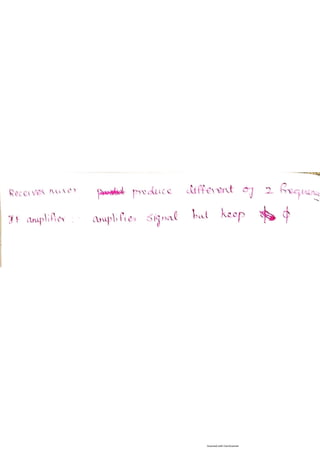 Receiver mixer produce different of 2 frequenc
If amplifier : amplifies signal but keep ϕ
Scanned with CamScanner